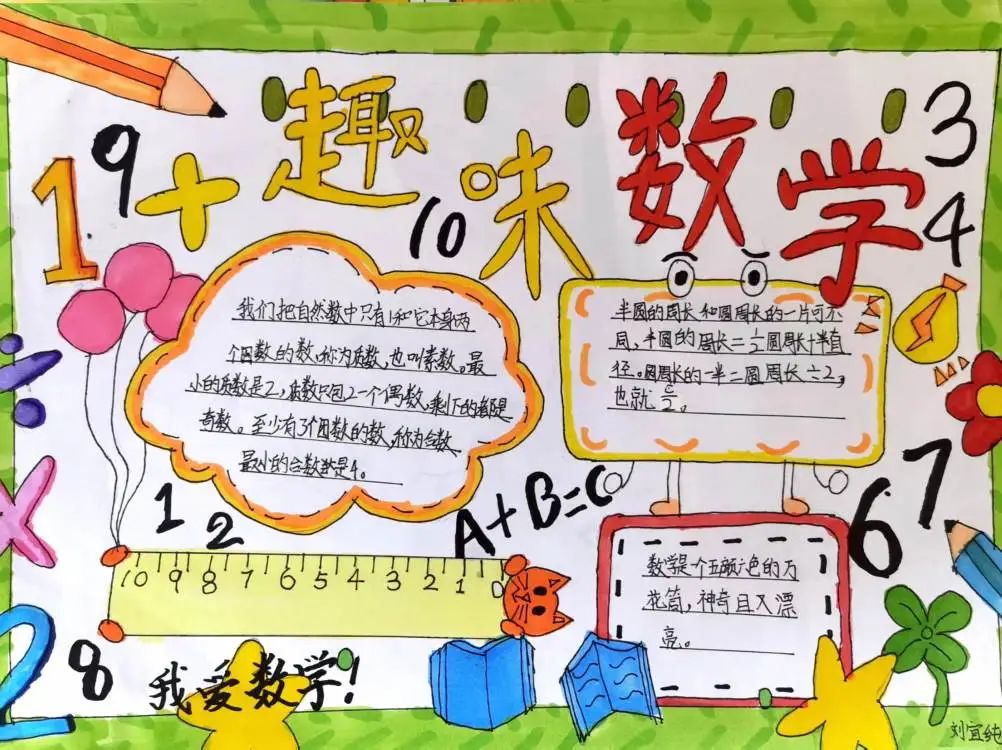 趣味数学
1
9
+
10
3
4
我们把自然数中只有1和它本身两
个因数的数,称为质数,也叫素数。最
小的质数是2,质数只包2一个偶数,剩下的都是
奇数。至少有3个因数的数,称为合数
最小的合数就是4。
半圆的周长和圆周长的一片可不
同,半圆的周长=1/2圆周长+半直
径。圆周长的一半=圆周长÷2,
也就C/2。
÷
×
1
2
A+B=C
6
7
10 9 8 7 6 5 4 3 2 1
数学是个五颜六色的万
花筒,神奇且又漂
亮。
2
8
我爱数学!
刘宜纯